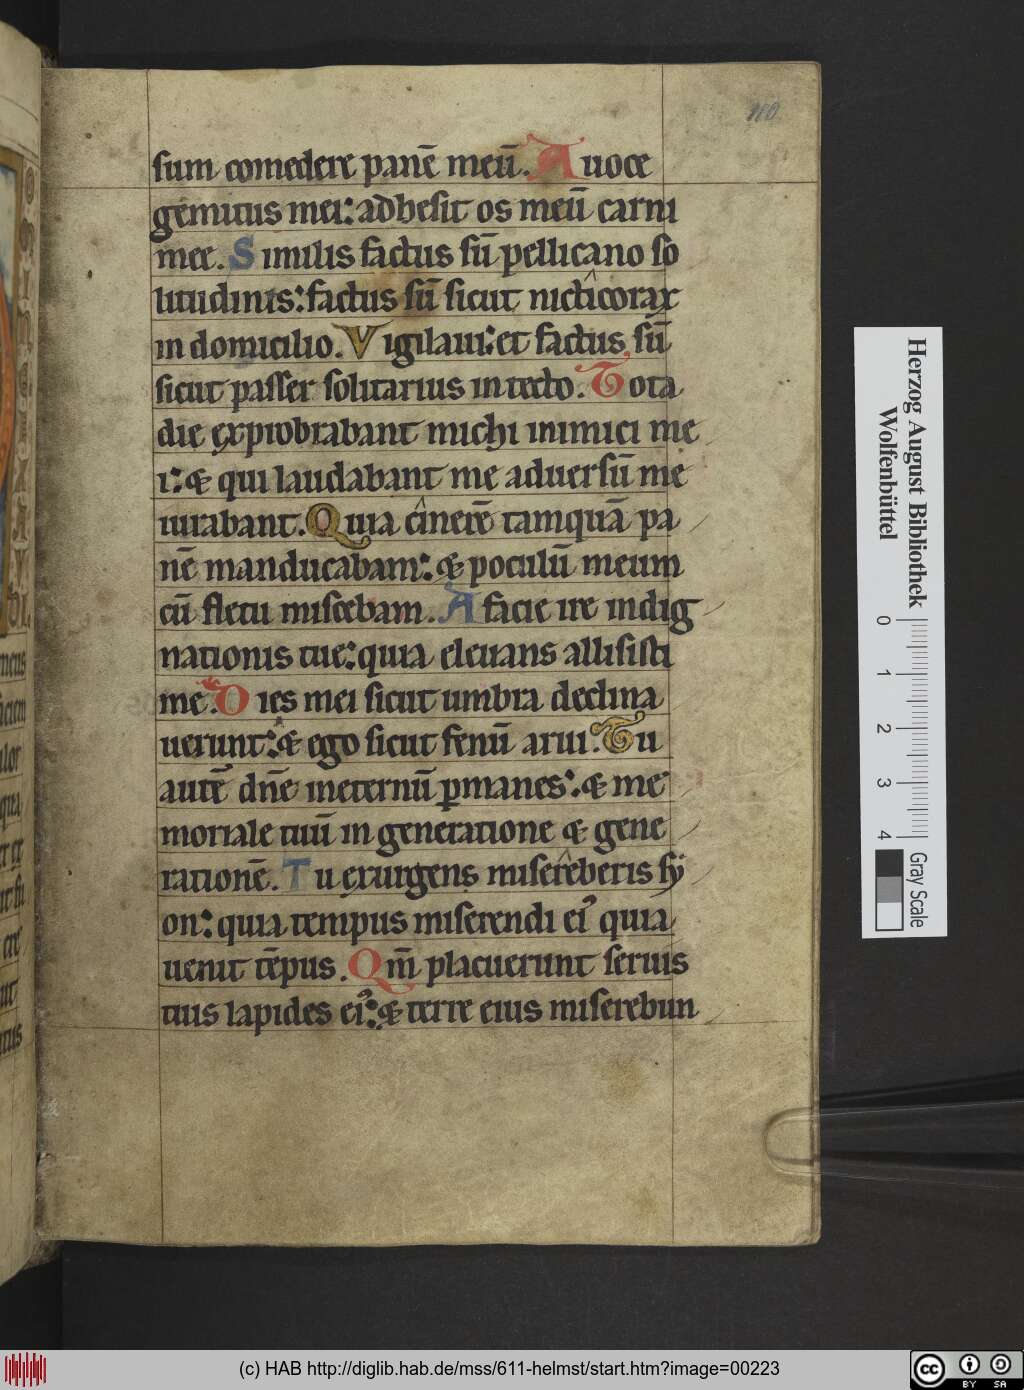 110
sum comedere panē meū. A uoce
gemitus mei: adhesit os meū carni
mee. Similis factus sū pellicano so
litudinis: factus sū sicut nicticorax
in domicilio. Vigilaui: et factus sū
sicut passer solitarius in tecto. Tota
die exprobrabant michi inimici me
i: & qui laudabant me aduersū me
iurabant. Quia cinerē tamquā pa
nē manducabam: & poculū meum
cū fletu miscebam. A facie ire indig
nationis tue: quia eleuans allisisti
me. Dies mei sicut umbra declina
uerunt: & ego sicut fenū arui. Tu
autē dn̄e ineternū ꝑmanes: & me
moriale tuū in generatione & gene
rationē. Tu exurgens misereberis sy
on: quia tempus miserendi ei᾽ quia
uenit tēpus. Qm̄ placuerunt seruis
tuis lapides ei᾽: & terre eius miserebun
Herzog August Bibliothek
Wolfenbüttel
0 1 2 3 4
Gray Scale
(c) HAB http://diglib.hab.de/mss/611-helmst/start.htm?image=00223
cc BY SA